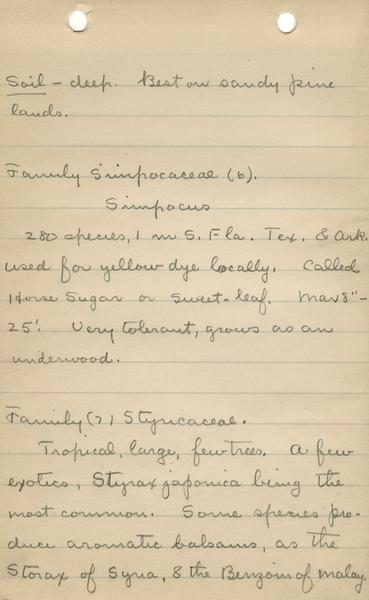 Soil - deep. Best on sandy pine
lands.
Family Simpocaceae (6).
Simpocus
280 species, 1 in S. Fla. Tex. & Ark.
used for yellow dye locally. Called
Horse Sugar or Sweet-leaf. Max 8"-
25'. Very tolerant, grows as an
underwood.
Family (7) Styricaceae.
Tropical, large, few trees. A few
exotics, Styrax japonica being the
most common. Some species pro-
duce aromatic balsams, as the
Storax of Syria, & the Benzoin of Malay.